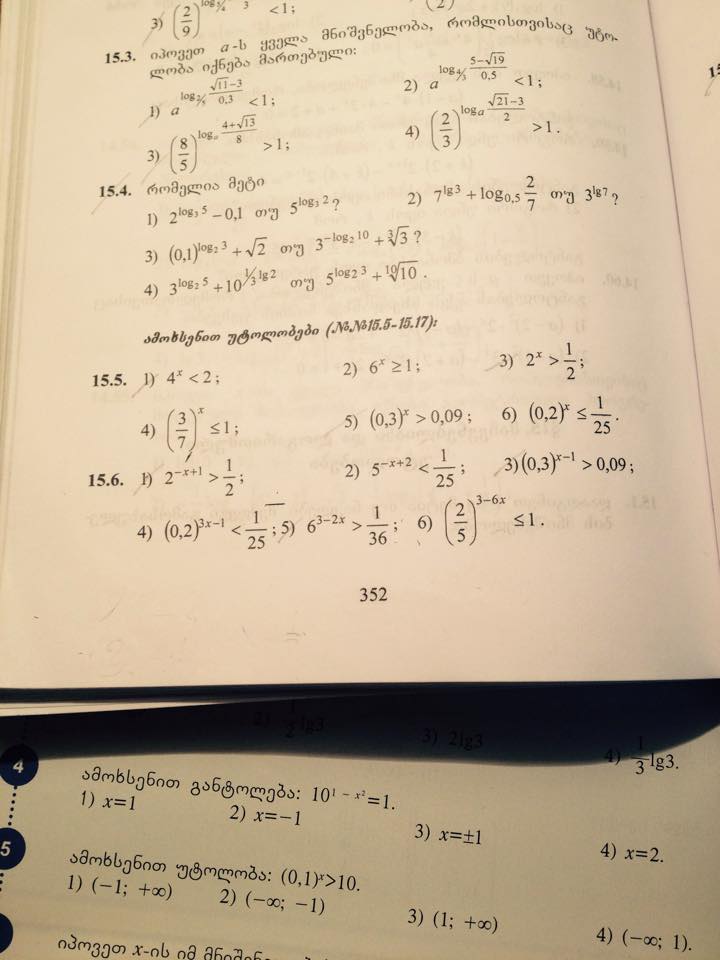 3) (2/9)^log 3/4 3 <1;
15.3. იპოვეთ a-ს ყველა მნიშვნელობა, რომლისთვისაც უტო-
ლობა იქნება მართებული:
1) a^(log_{2/5} (√11−3)/0,3) <1;
2) a^(log_{4/3} (5−√19)/0,5) <1;
3) (8/5)^(log_a (4+√13)/8) >1;
4) (2/3)^(log_a (√21−3)/2) >1.
15.4. რომელია მეტი
1) 2^(log_3 5) −0,1 თუ 5^(log_3 2)?
2) 7^(lg3) + log_{0,5} 2/7 თუ 3^(lg7)?
3) (0,1)^(log_2 3) + √2 თუ 3^(−log_2 10) + ∛3?
4) 3^(log_2 5) + 10^(1/3 lg2) თუ 5^(log_2 3) + ¹⁰√10.
ამოხსენით უტოლობები (№№15.5-15.17):
15.5. 1) 4^x < 2; 2) 6^x ≥ 1; 3) 2^x > 1/2;
4) (3/7)^x ≤ 1; 5) (0,3)^x > 0,09; 6) (0,2)^x ≤ 1/25.
15.6. 1) 2^(−x+1) > 1/2; 2) 5^(−x+2) < 1/25; 3) (0,3)^(x−1) > 0,09;
4) (0,2)^(3x−1) < 1/25; 5) 6^(3−2x) > 1/36; 6) (2/5)^(3−6x) ≤ 1.
352
2) 1/2 lg3 3) 2lg3 4) 1/3 lg3.
4 ამოხსენით განტოლება: 10^(1 − x²)=1.
1) x=1 2) x=−1 3) x=±1 4) x=2.
5 ამოხსენით უტოლობა: (0,1)^x>10.
1) (−1; +∞) 2) (−∞; −1) 3) (1; +∞) 4) (−∞; 1).
იპოვეთ x-ის იმ